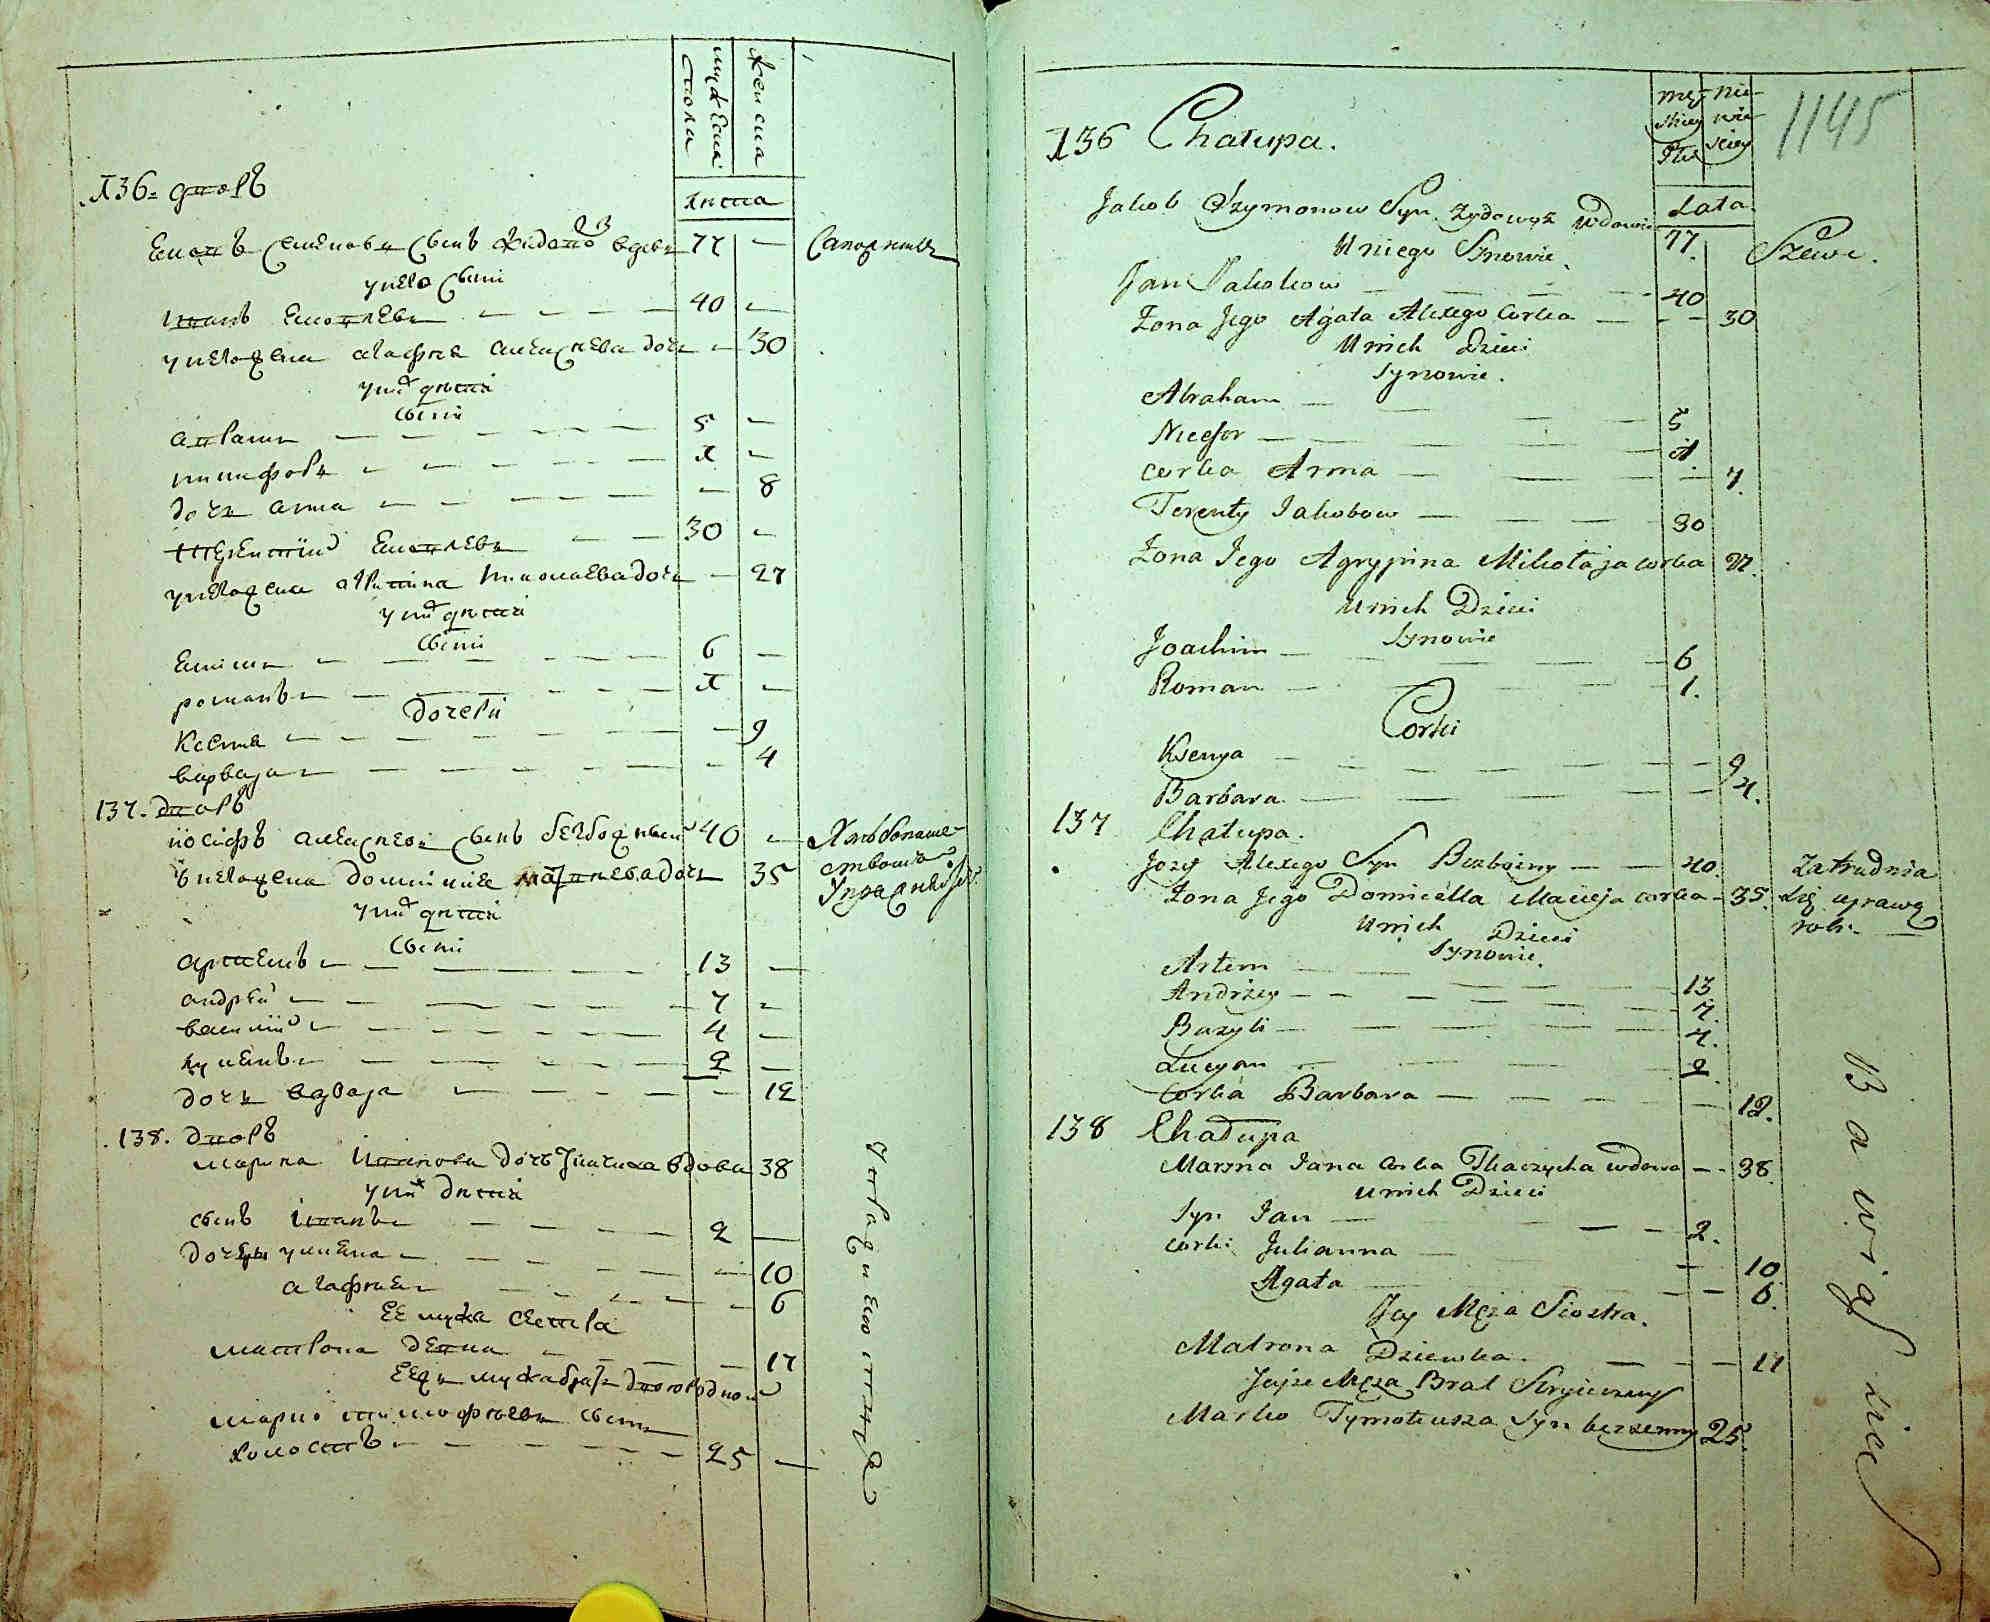 мужеска
пола
женска
лѣта
136. дворъ
Ековъ Семеновъ сынъ Жидовъ вдовъ 77 — Сапожникъ
у него сыни
Иванъ Ековлевъ — — — 40 —
у него жена агафия алексѣева дочь — 30
у них дѣтти
сыни
аврамъ — — — 5 —
никифоръ — — — 1 —
дочь анна — — — 8
теренттий Ековлевъ — — 30 —
у него жена агрипина николаева дочь — 27
у них дѣтти
сыни
Екимъ — — — 6 —
романъ — — — 1 —
дочери
Ксения — — — 9
варвара — — — 4
137. дворъ
иосифъ алексѣевъ сынъ безбожный 40 — Хлѣбопаше-
у него жена доминикия дочь 35 ством
упражняется
у них дѣтти
сыни
арттемъ — — — 13 —
андрей — — — 7 —
василий — — — 4 —
лукианъ — — — 2 —
дочь варвара — — — 12
138. дворъ
марина Иванова дочь Ткачиха вдова 38
у ней дѣтти
сынъ Иванъ — — — 2 —
дочери улиена — — — 10
агафия — — — 6
ее мужа сестра
маттрона девка — — — 17
еежъ мужа братъ двоюродной
марко тимофѣевъ сынъ
холостъ — — — 25 —
1145
męz-
skiey
Płci
nie-
wie-
sciey
Lata
136 Chałupa.
Jakob Szymonow Syn Zydowąz Wdowiec 77. Szewc.
U niego Synowie.
Jan Jakobow — — — 40
Żona Jego Agata Alexego Corka — — 30
U nich Dzieci
Synowie.
Abraham — — — 5
Nicefor — — — 1.
corka Anna — — — 7.
Terenty Jakobow — — — 30
Żona Jego Agrypina Mikołaja corka 27.
U nich Dzieci
Synowie
Joachim — — — 6
Roman — — — 1.
Corki
Ksenya — — — 9
Barbara — — — 4.
137 Chałupa.
Jozef Alexego Syn Bezbożny — — 40. Zatrudnia
Żona Jego Domicella Macieja corka — 35. się uprawą
roli —
U nich Dzieci
Synowie.
Artem — — — 13
Andrzey — — — 7.
Bazyli — — — 4.
Lucyan — — — 2.
Corka Barbara — — — 12.
138 Chałupa
Maryna Jana Corka Tkaczycha wdowa — 38.
U nich Dzieci
Syn Jan — — — 2.
corki Julianna — — 10
Agata — — — 6.
Jey Męża Siostra.
Matrona Dziewka. — — — 17
Jeyże Męża Brat Stryieczny
Marko Tymoteusza Syn bezżenny 25.